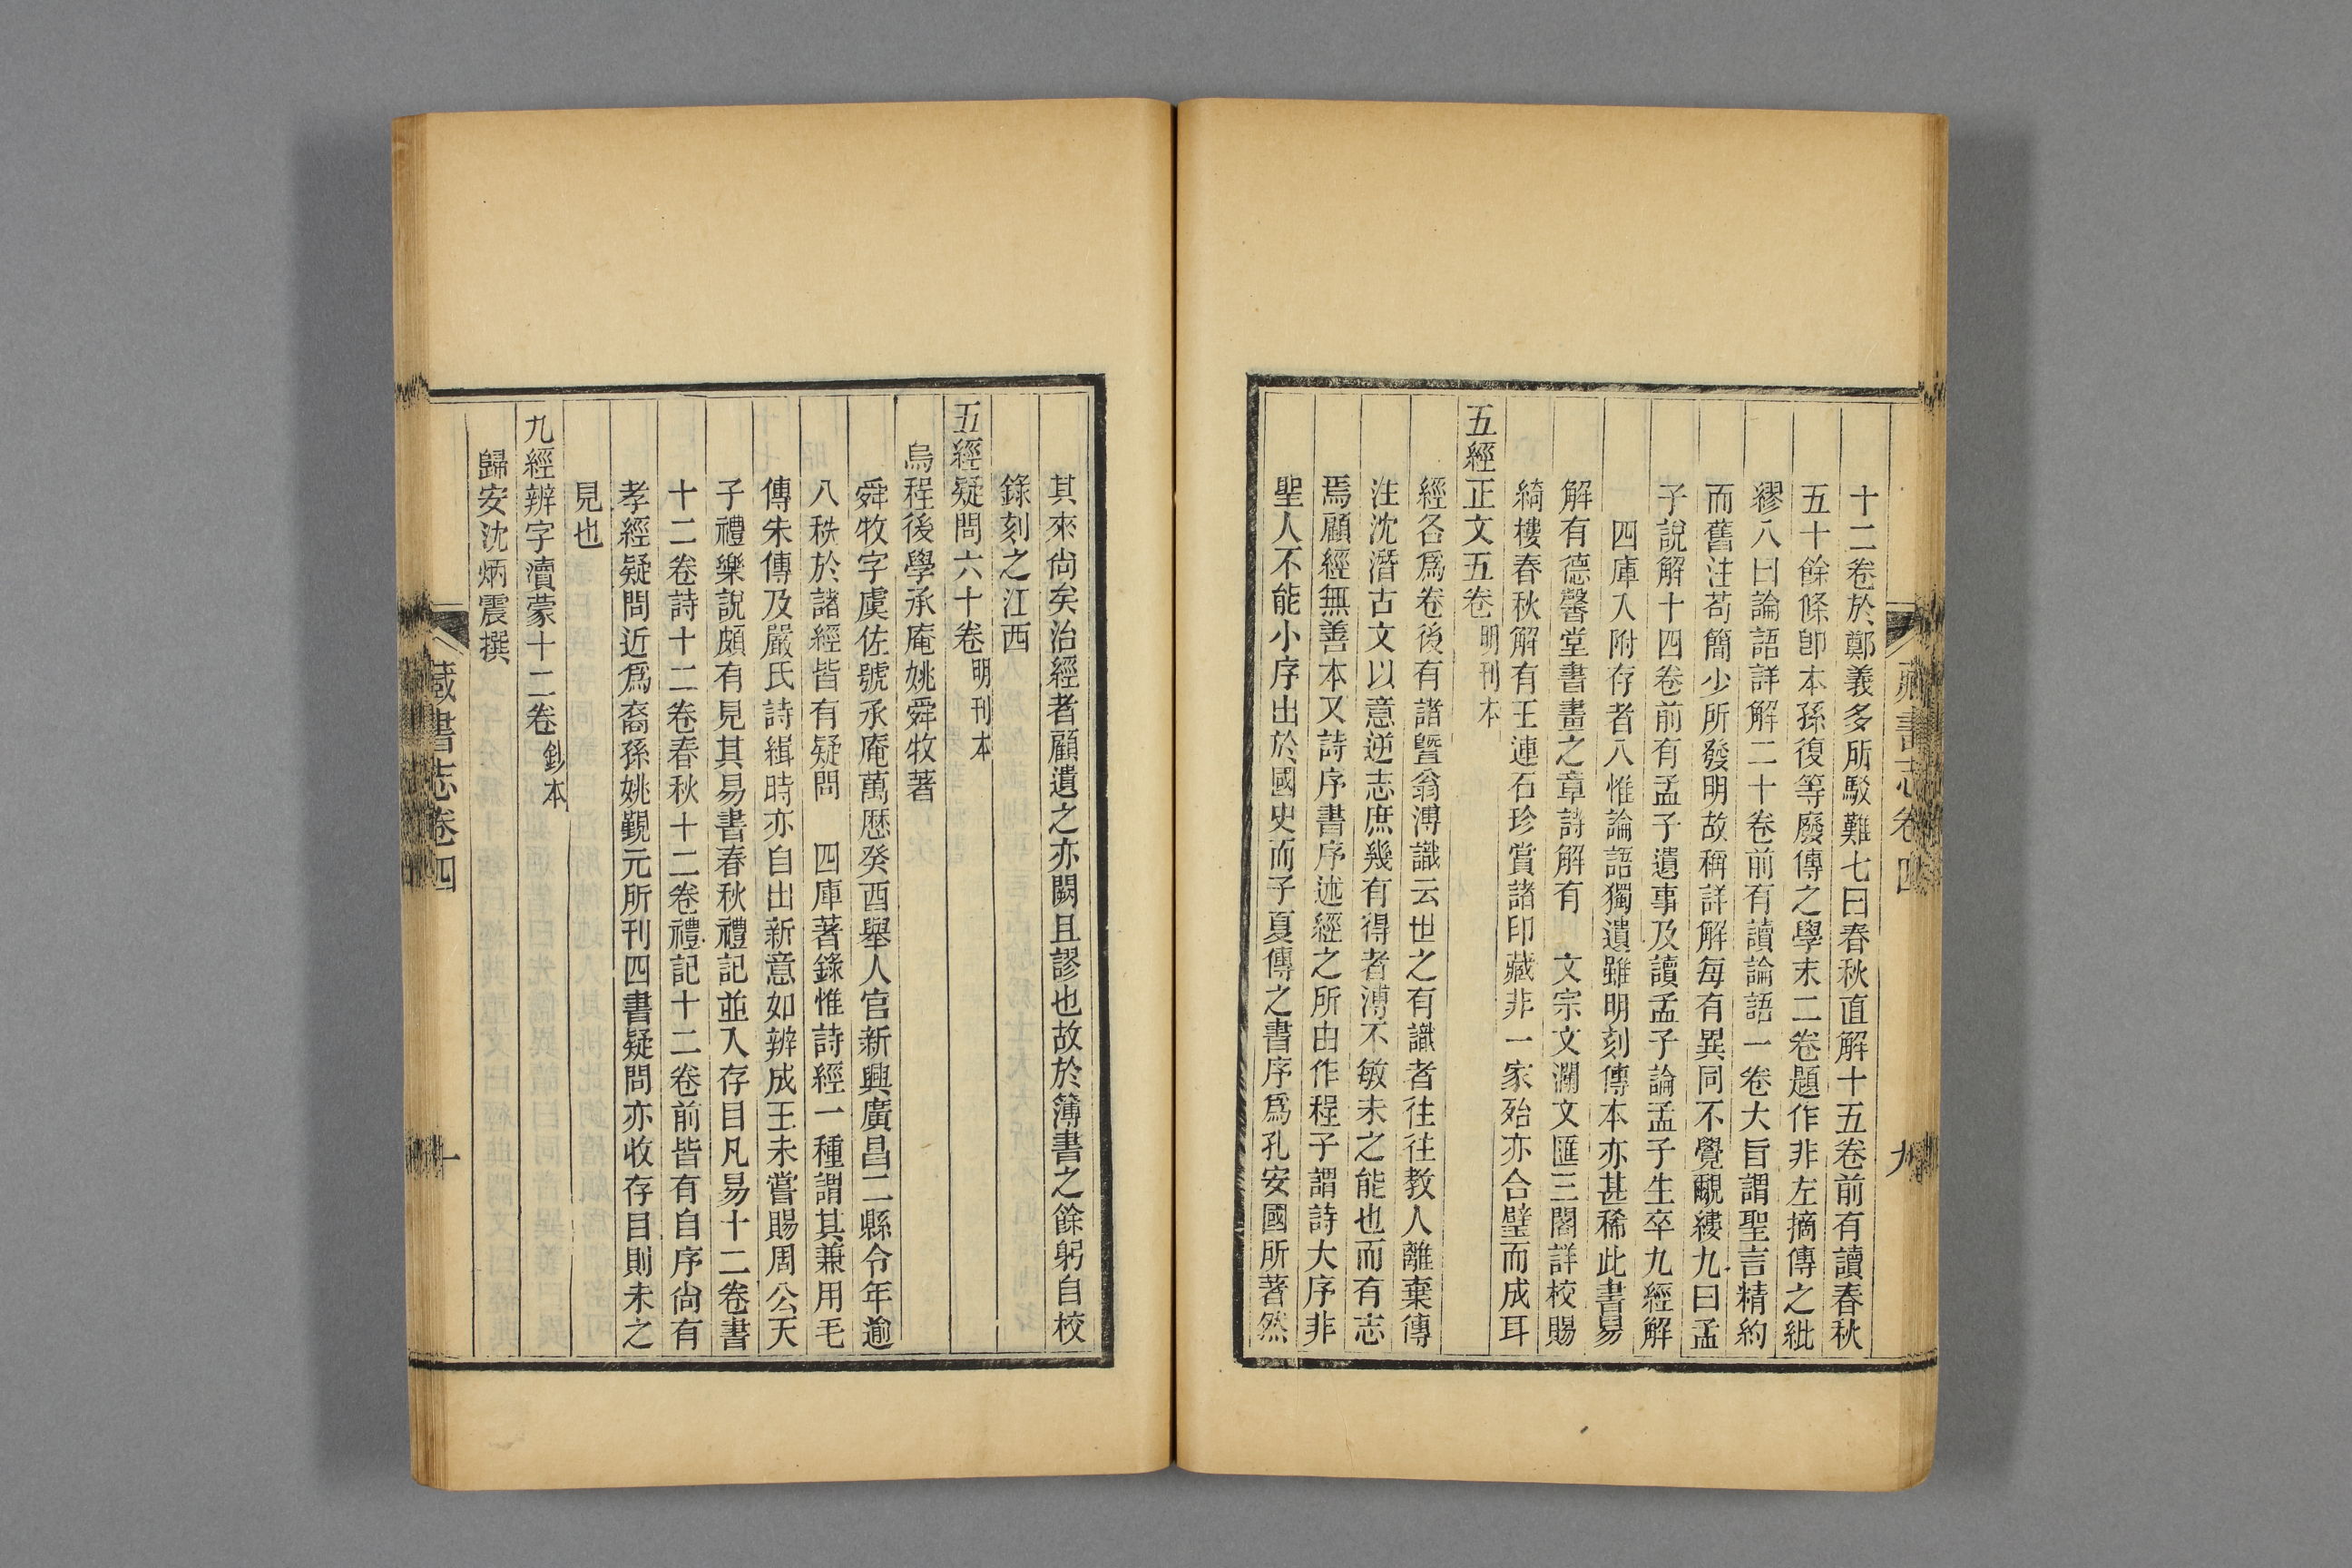 藏書志卷四
九
十二卷於鄭義多所駁難七曰春秋直解十五卷前有讀春秋
五十餘條卽本孫復等廢傳之學末二卷題作非左摘傳之紕
繆八曰論語詳解二十卷前有讀論語一卷大旨謂聖言精約
而舊注苟簡少所發明故稱詳解每有異同不覺覼縷九曰孟
子說解十四卷前有孟子遺事及讀孟子論孟子生卒九經解
四庫入附存者八惟論語獨遺雖明刻傳本亦甚稀此書易
解有德馨堂書畫之章詩解有 文宗文瀾文匯三閣詳校賜
綺樓春秋解有王連石珍賞諸印藏非一家殆亦合璧而成耳
五經正文五卷明刊本
經各爲卷後有諸曁翁溥識云世之有識者往往教人離棄傳
注沈潛古文以意逆志庶幾有得者溥不敏未之能也而有志
焉顧經無善本又詩序書序述經之所由作程子謂詩大序非
聖人不能小序出於國史而子夏傳之書序爲孔安國所著然
其來尙矣治經者顧遺之亦闕且謬也故於簿書之餘躬自校
錄刻之江西
五經疑問六十卷明刊本
烏程後學承庵姚舜牧著
舜牧字虞佐號承庵萬歷癸酉舉人官新興廣昌二縣令年逾
八秩於諸經皆有疑問 四庫著錄惟詩經一種謂其兼用毛
傳朱傳及嚴氏詩緝時亦自出新意如辨成王未嘗賜周公天
子禮樂說頗有見其易書春秋禮記並入存目凡易十二卷書
十二卷詩十二卷春秋十二卷禮記十二卷前皆有自序尙有
孝經疑問近爲裔孫姚覲元所刊四書疑問亦收存目則未之
見也
九經辨字瀆蒙十二卷鈔本
歸安沈炳震撰
藏書志卷四